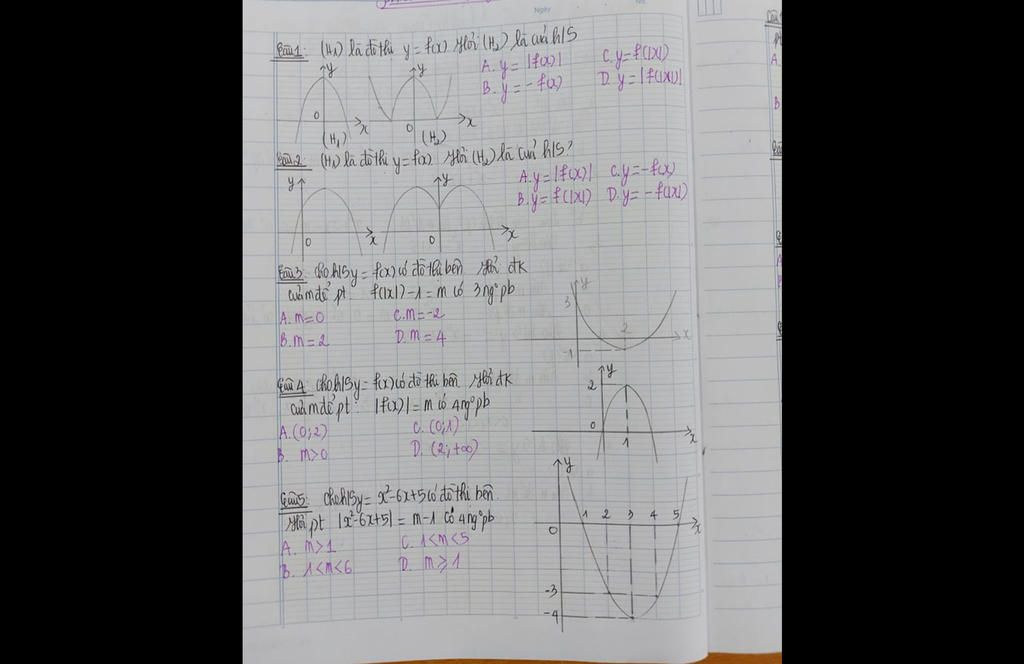 Ngày
Câu 1: (H₁) là đồ thị y = f(x) Hỏi (H₂) là của h/S
A. y = |f(x)| C. y = f(|x|)
B. y = -f(x) D. y = |f(|x|)|
y y
0 x 0 x
(H₁) (H₂)
Câu 2: (H₁) là đồ thị y = f(x) Hỏi (H₂) là của h/S?
A. y = |f(x)| C. y = -f(x)
B. y = f(|x|) D. y = -f(|x|)
y y
0 x 0 x
Câu 3: Cho h/S y = f(x) có đồ thị bên Hỏi đk
của m để pt: f(|x|) - 1 = m có 3 ngº pb
A. m = 0 C. m = -2
B. m = 2 D. m = 4
y
3
2 x
-1
Câu 4: Cho h/S y = f(x) có đồ thị bên Hỏi đk
của m để pt: |f(x)| = m có 4 ngº pb
A. (0; 2) C. (0; 1)
B. m > 0 D. (2; +∞)
y
2
0 1 x
Câu 5: Cho h/S y = x² - 6x + 5 có đồ thị bên.
Hỏi pt |x² - 6x + 5| = m - 1 có 4 ngº pb
A. m > 1 C. 1 < m < 5
B. 1 < m < 6 D. m ⩾ 1
y
1 2 3 4 5 x
0
-3
-4